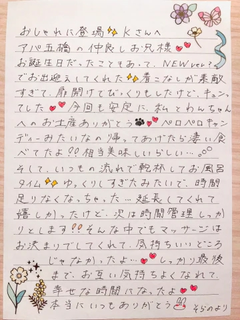 おしゃれに登場✨Kさんへ
アパ五橋の仲良しお兄様💕
お誕生日だったこともあって、NEWver.
でお出迎えしてくれた✨着こなしが素敵
すぎて、扇開けてびっくりもしたけど、キュンっ
でした💕今回も安定に、私とわんちゃん
へのお土産ありがとう🐾💕ペロペロキャン
ディーみたいなの帰ってあげたら凄い食
べてたよ!!相当美味しいらしい…。
そして、いつもの流れで乾杯してお風呂
タイム✨ゆっくりしすぎたみたいで、時間
足りなくなっちゃった…延長してくれて
嬉しかったけど、次は時間管理しっか
りとします!!そんな中でもマッサージは
お決まりでしてくれて、気持ちいいところ
じゃなかったよ…💕しっかり最後
まで、お互い気持ちよくなれて、
幸せな時間になったよ❤
本当にいつもありがとう
そらのより